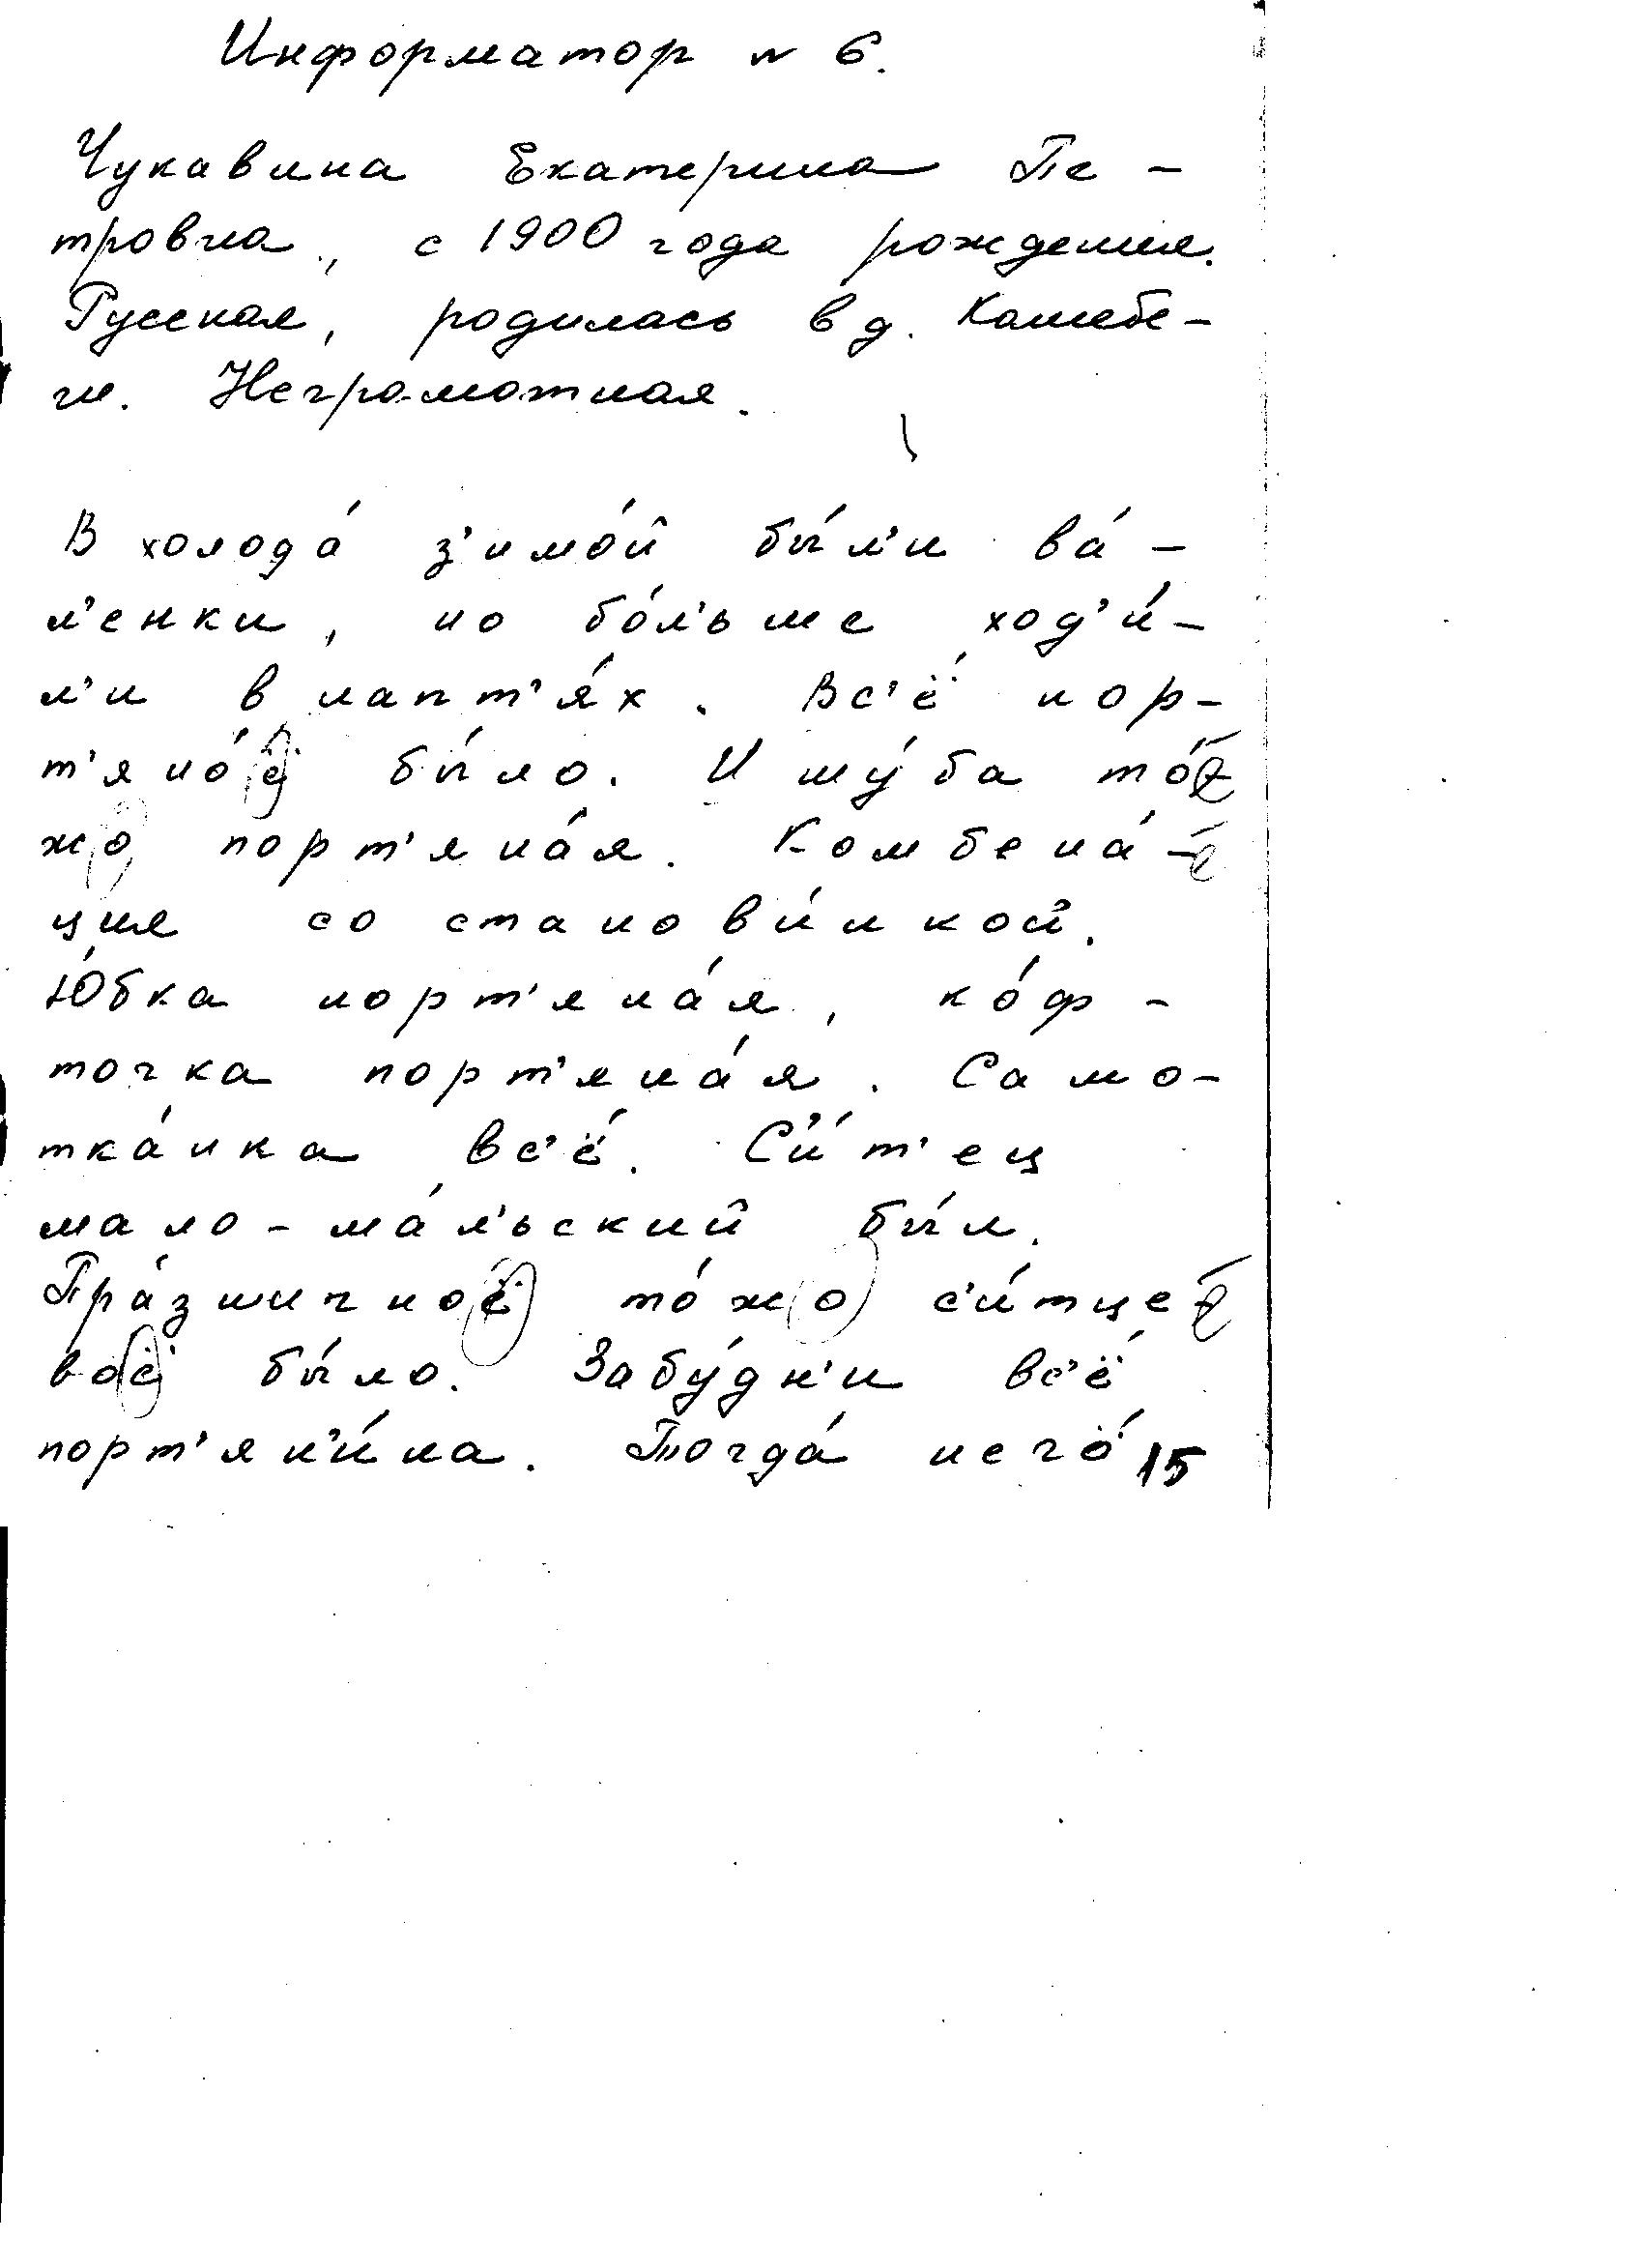 Информатор N 6.
Чукавина Екатерина Пе-
тровна, с 1900 года рождения.
Русская, родилась в д.
Неграмотная.
В холода́ з'имо́й бы́л'и ва́-
л'енки, но бо́л'ьше ход'и́-
л'и в лапт'я́х. Вс'ё́ пор-
т'яно́ё бы́ло. И шу́ба то́-
жо порт'яна́я. Комбена́-
ция со станови́нкой.
Ю́бка порт'яна́я, ко́ф-
точка порт'яна́я. Само-
тка́нка вс'ё́. С'и́т'ец
мало-ма́л'ьский бы́л.
Пра́зничноё то́жо с'и́тце-
воё бы́ло. Забу́дн'и вс'ё́
порт'ян'и́на. Тогда́ нечо́ 15